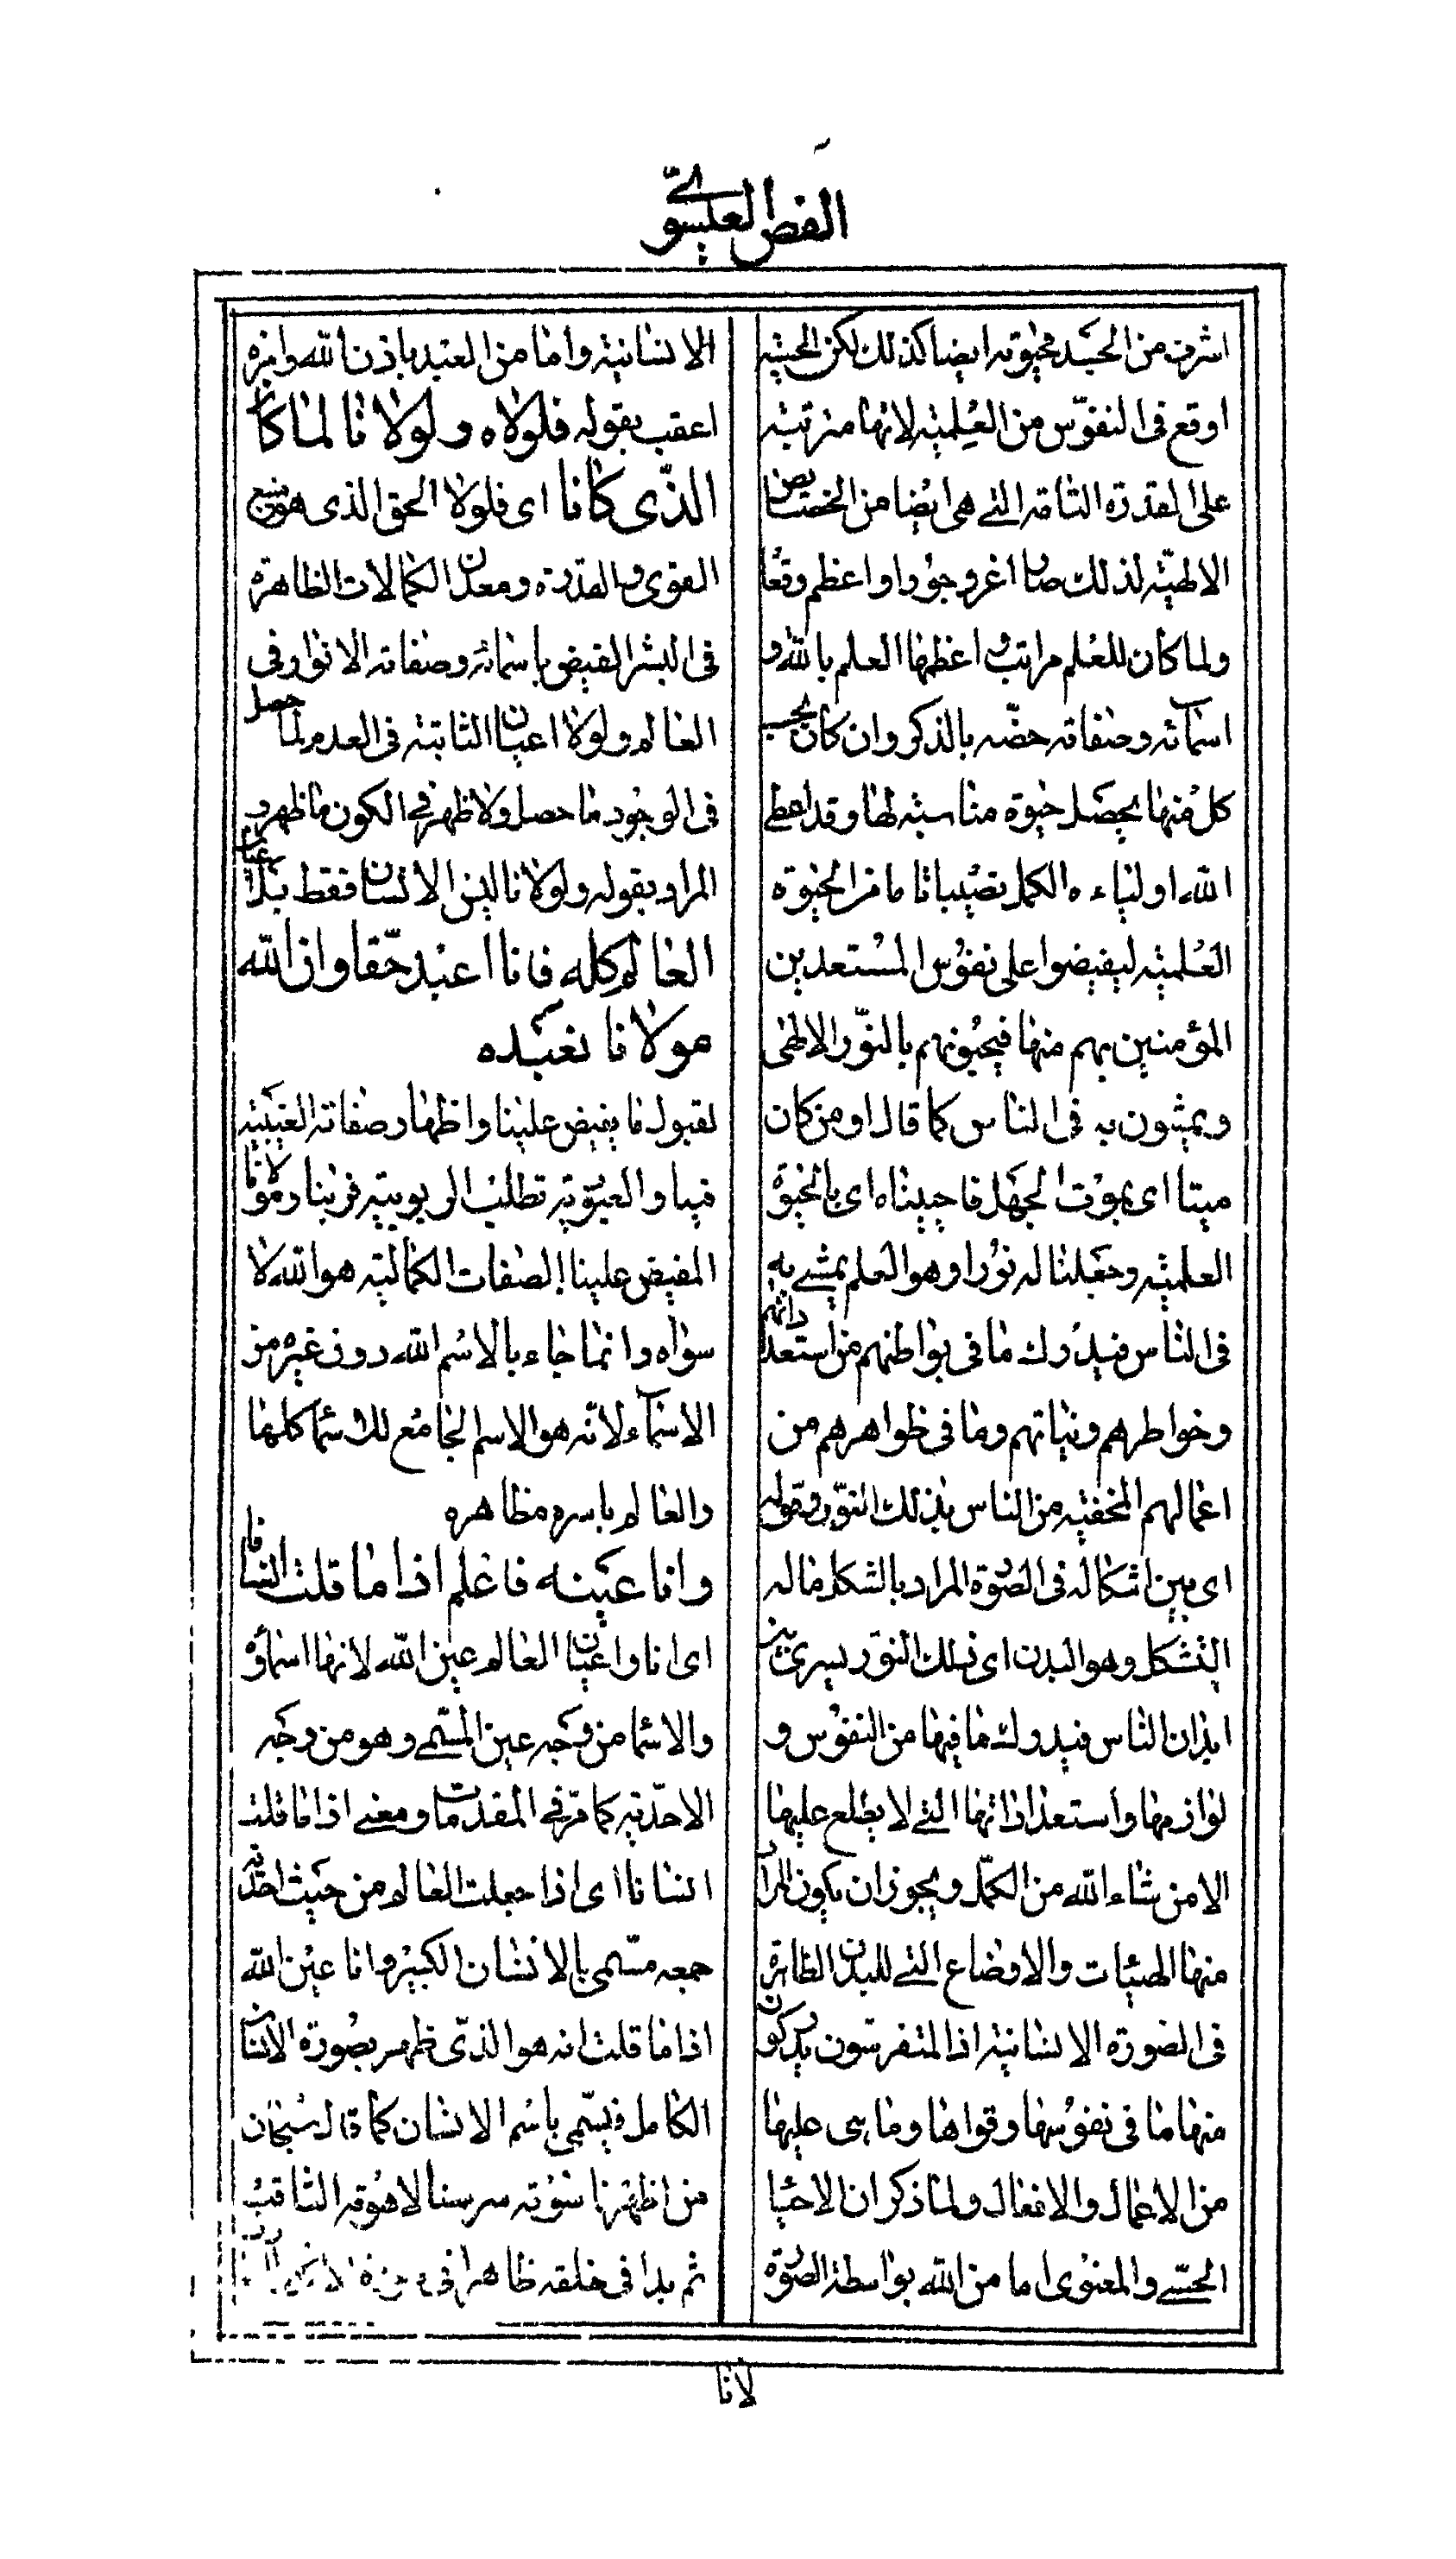 الفص العيسوي
اشرف من الجسد فحيوته ايضا كذلك لكن الحسيه
اوقع في النفوس من العلميه لانها مترتبه
على القدرة التامه التي هي ايضا من الخصائص
الالهيه لذلك صار اعز وجودا واعظم وقعا
ولما كان للعلم مراتب و اعظمها العلم بالله و
اسمائه وصفاته خصه بالذكر وان كان بحسب
كل منها يحصل حيوة مناسبه لها وقد اعطى
الله اولياءه الكمل نصيبا تاما من الحيوة
العلميه ليفيضوا على نفوس المستعدين
المؤمنين بهم منها فيحيونهم بالنور الالهى
ويمشون به في الناس كما قال او من كان
ميتا اى بموت الجهل فاحييناه اى بالحيوة
العلميه وجعلنا له نورا وهو العلم يمشي به
في الناس فيدرك ما في بواطنهم من استعداداتهم
وخواطرهم ونياتهم وما في ظواهرهم من
اعمالهم المخفيه من الناس بذلك النور وقوله
اى بين اشكاله في الصورة المراد بالشكل ماله
التشكل وهو البدن اى بذلك النور يسرى بين
ابدان الناس فيدرك ما فيها من النفوس و
لوازمها واستعداداتها التي لا يطلع عليها
الا من شاء الله من الكمل ويجوز ان يكون المراد
منها الهيئات والاوضاع التي للبدن الظاهرة
في الصورة الانسانيه اذ المتفرسون يدركون
منها ما في نفوسها وقواها وما هي عليها
من الاعمال والافعال ولما ذكر ان الاحيا
الحسي والمعنوى اما من الله بواسطة الصورة
الانسانيه واما من العبد باذن الله وامره
اعقب بقوله فلولاه ولولانا لما كان
الذى كانا اى فلولا الحق الذى هو منبع
القوى والقدرة ومعدن الكمالات الظاهرة
في البشر الفيض باسمائه وصفاته الانوار في
العالم ولولا اعيان الثابته في العدم لما حصل
في الوجود ما حصل ولا ظهر في الكون ما ظهر و
المراد بقوله ولولانا ليس الانسان فقط بل اعيان
العالم كله فانا اعبد حقا وان الله
مولانا نعبده
لقبول ما يفيض علينا واظهار صفاته الغيبيه
فينا والعبوديه تطلب الربوبيه فربنا ومولانا
المفيض علينا الصفات الكماليه هو الله لا
سواه وانما جاء بالاسم الله دون غيره من
الاسماء لانه هو الاسم الجامع للاسما كلها
والعالم باسره مظاهره
وانا عينه فاعلم اذا ما قلت انسانا
اى انا واعيان العالم عين الله لانها اسماؤه
والاسما من وجه عين المسمى وهو من وجه
الاحديه كما مر في المقدمات ومعنى اذا ما قلت
انسانا اى اذا جعلت العالم من حيث احديه
جمعه مسمى بالانسان الكبير وانا عين الله
اذا ما قلت انه هو الذى ظهر بصورة الانسان
الكامل فيسمى باسم الانسان كما قال سبحان
من اظهر ناسوته سر سنا لاهوته الثاقب
ثم بدا في خلقه ظاهرا في صورة الاكل
لانا